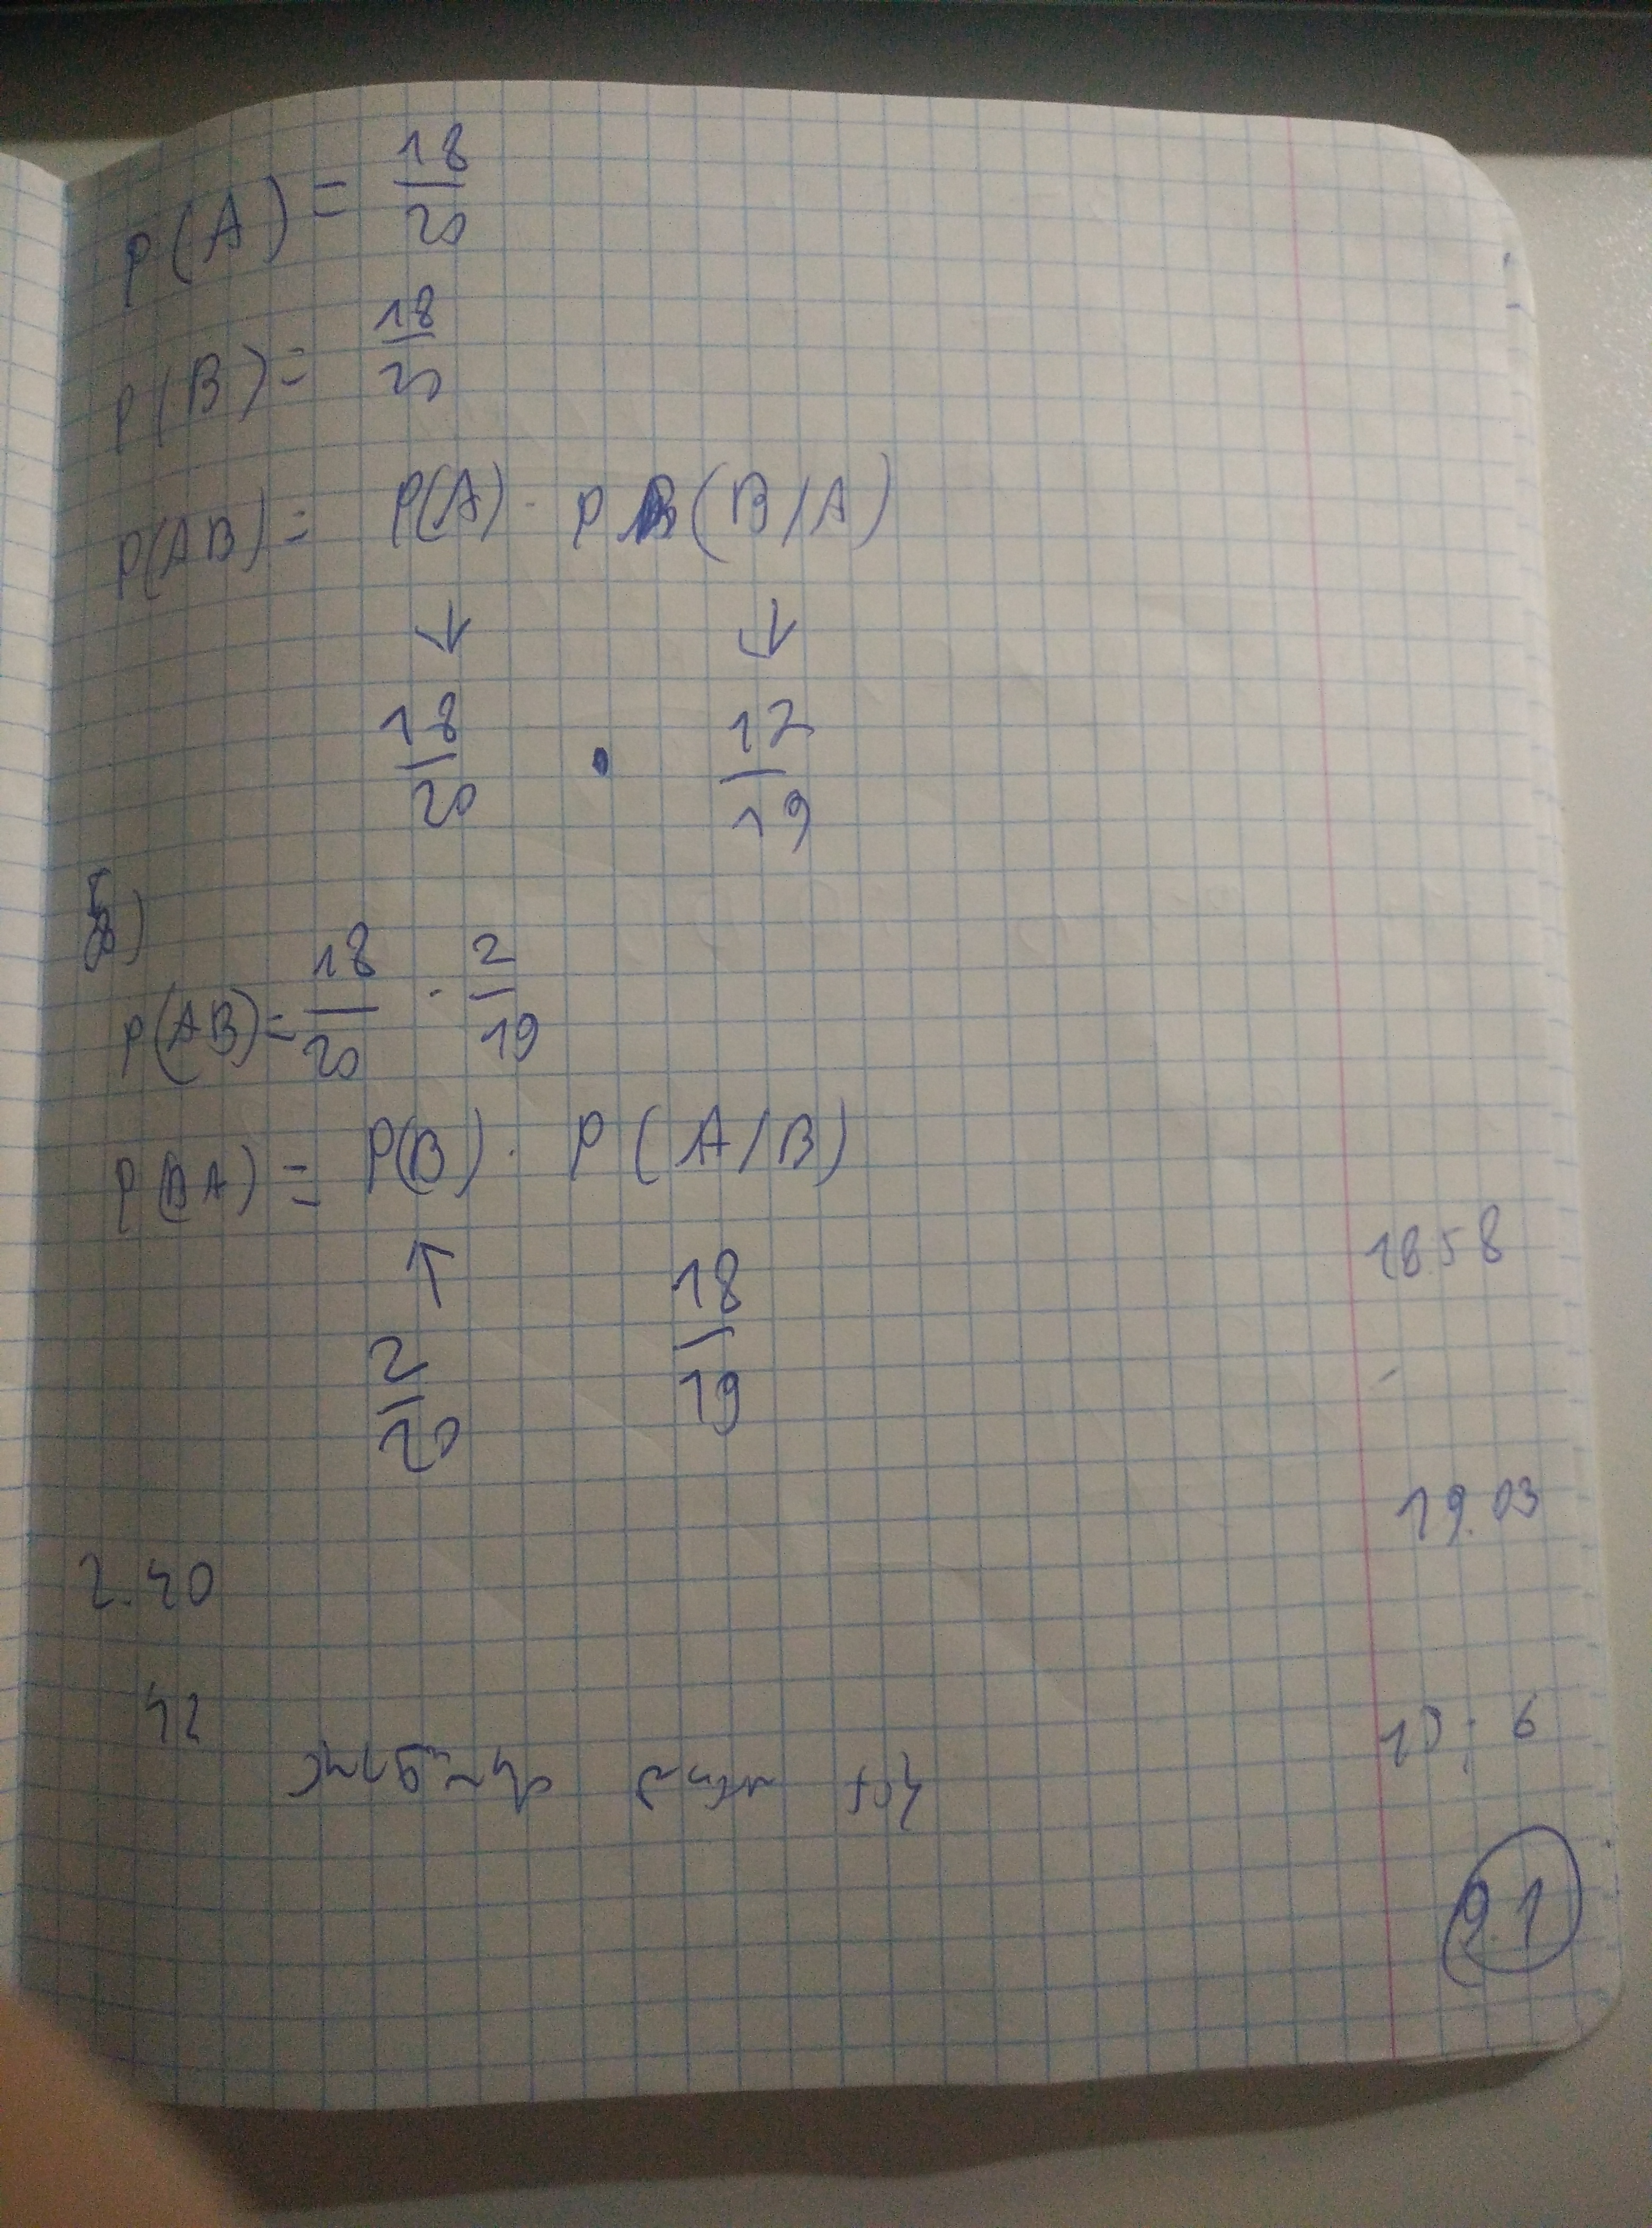 P(A) = 18/20
P(B) = 18/20
P(AB) = P(A) · P(B/A)
↓ ↓
18/20 · 17/19
ნ)
P(AB) = 18/20 · 2/19
P(BA) = P(B) · P(A/B)
↑
2/20 18/19
18 58
19.03
2.40
42
13 : 6
9.1